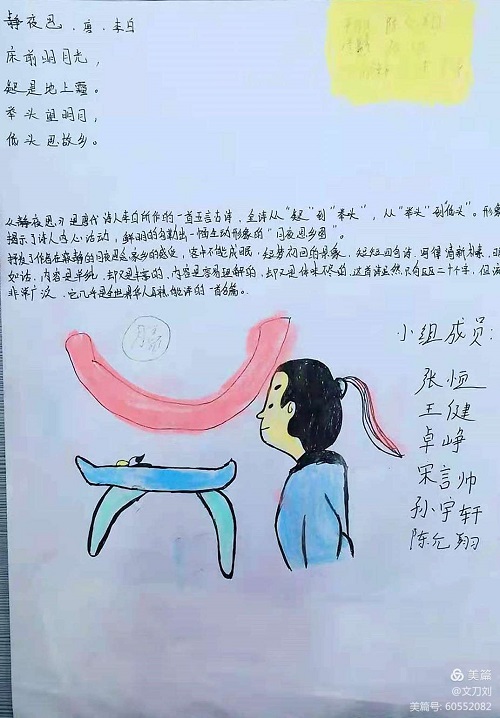 静夜思.唐.李白
床前明月光，
疑是地上霜。
举头望明月，
低头思故乡。
《静夜思》是唐代诗人李白所作的一首五言古诗，全诗从"疑"到"举头"，从"举头"到"低头"。形象
揭示了诗人内心活动，鲜明的勾勒出一幅生动形象的"月夜思乡图"。
抒发了作者在寂静的月夜思念家乡的感受，客中不能成眠，短梦初回的景象，短短四句诗，写得清新朴素，明
如话，内容是单纯，却又是丰富的，内容是容易理解的，却又是体味不尽的，这首诗虽然只有区区二十个字，但流
非常广泛，它几乎是全世界华人耳熟能详的一首名篇。
小组成员：
张恒
王健
卓峥
宋言帅
孙宇轩
陈允翔
美篇
@文刀刘
美篇号: 60552082